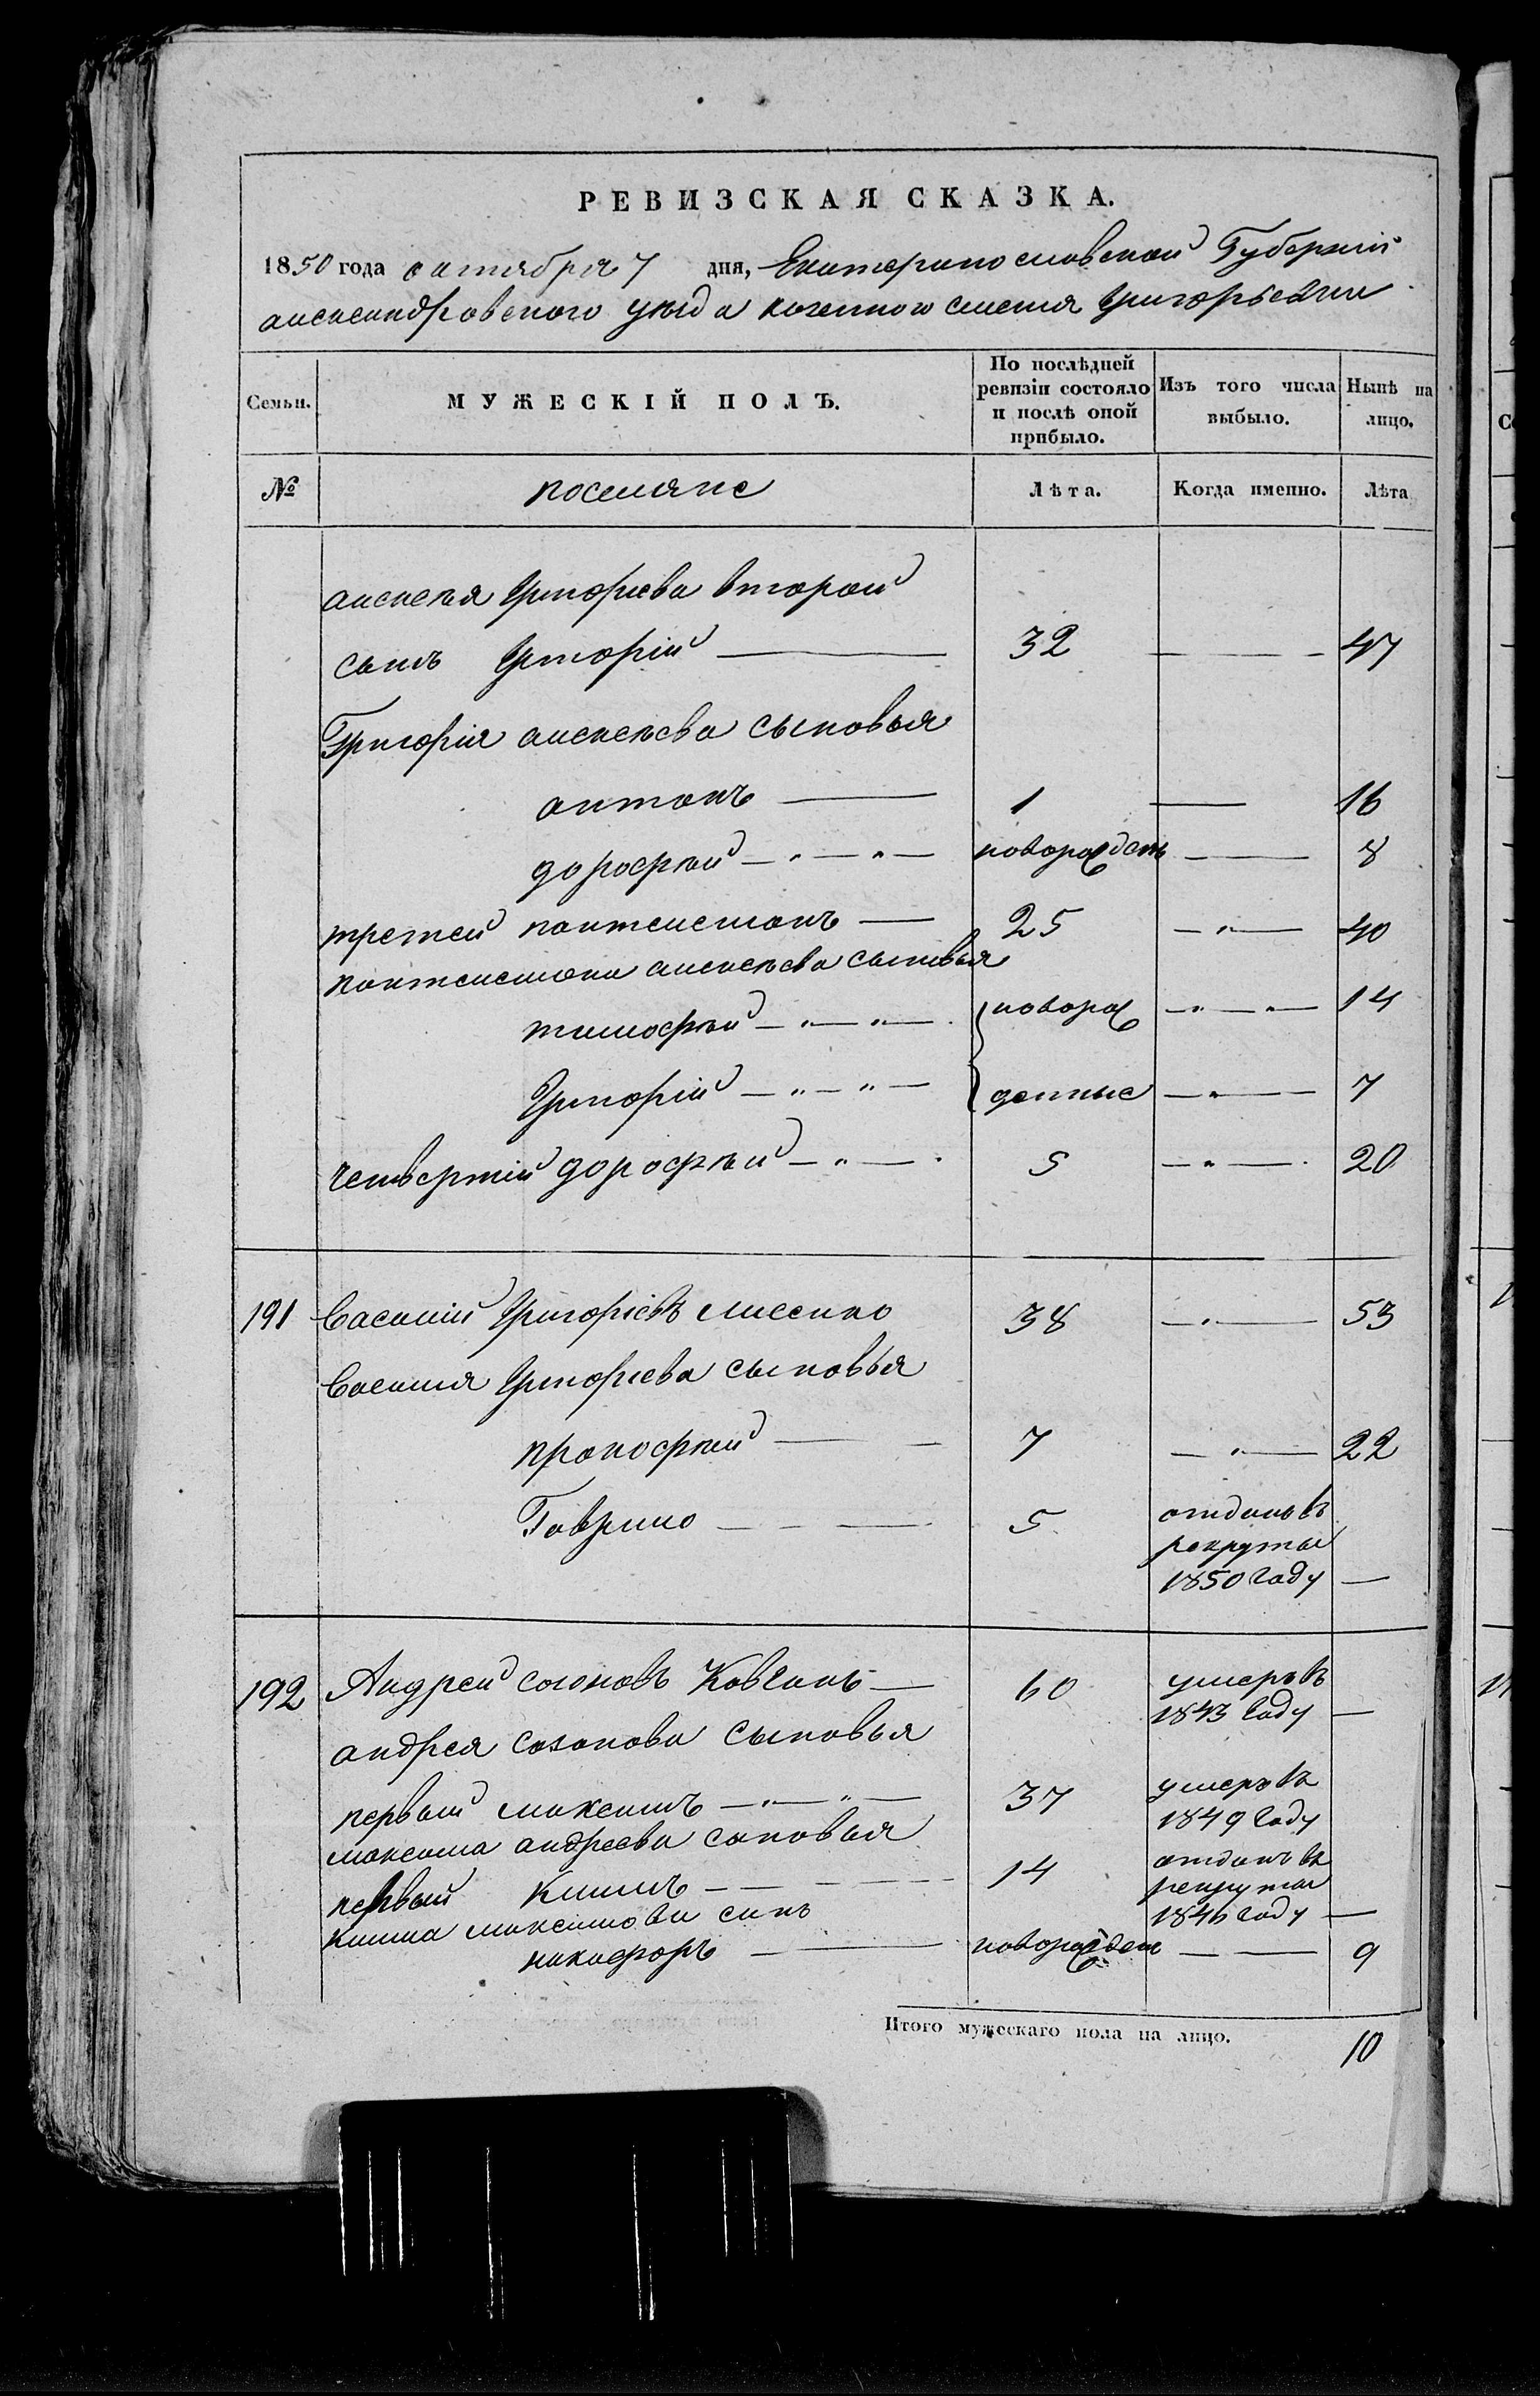 РЕВИЗСКАЯ СКАЗКА.
1850 года октября 7 дня, Екатеринославской Губернии
александровского уезда казенного селения Григорьевки
Семьи. МУЖЕСКІЙ ПОЛЪ. По послѣдней ревизіи состояло и послѣ оной прибыло. Изъ того числа выбыло. Нынѣ на лицо.
№ поселяне Лѣта. Когда именно. Лѣта
алексея Григориева второй
сынъ Григорій 32 47
Григорія алексеева сыновья
антонъ 1 16
дорофей новорожденъ 8
третей пантелемонъ 25 40
пантелемона алексеева сыновья
тимофей новорож 14
Григорій денные 7
четвертій дорофей 5 20
191 Василий Григоріевъ 38 53
Василия Григориева сыновья
прокофий 7 22
Гаврило 5 отданъ въ
рекруты
1850 Году
192 Андрей созоновъ Ковганъ 60 умеръ въ
1843 Году
андрея созонова сыновья
первый максимъ 37 умеръ въ
1849 Году
максима андреева сыновья
первый климъ 14 отданъ въ
рекруты
1846 Году
клима максимова сынъ
никифоръ новорожден 9
Итого мужескаго пола на лицо. 10